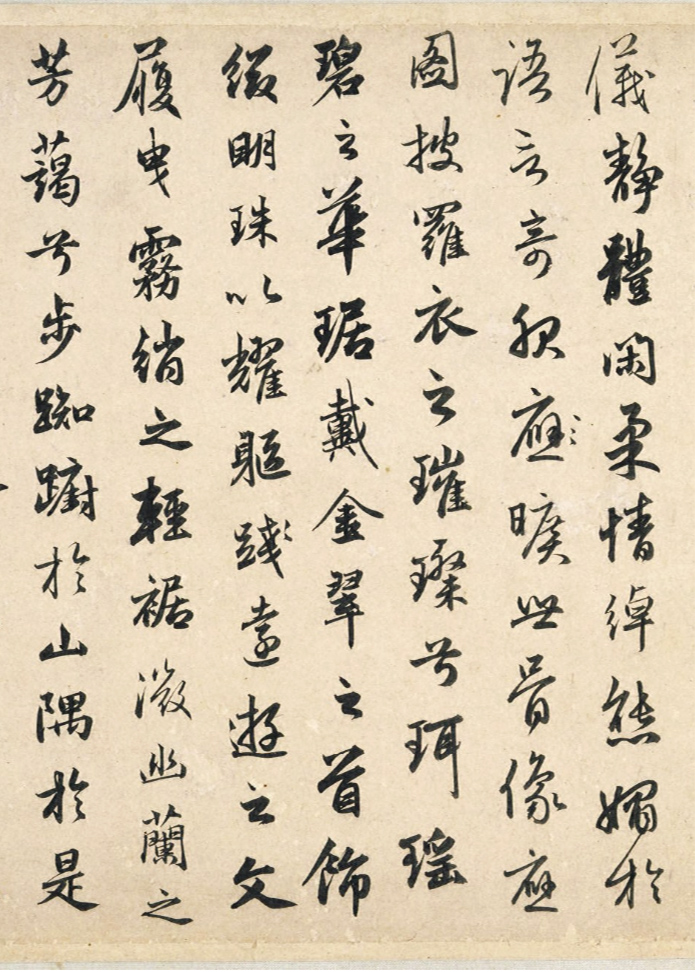 儀静體閑柔情綽態媚於
語言奇服應曠世骨像應
圖披羅衣之璀璨兮珥瑶
碧之華琚戴金翠之首飾
綴明珠以耀軀踐遠遊之文
履曳霧綃之輕裾微幽蘭之
芳藹兮步踟躕於山隅於是